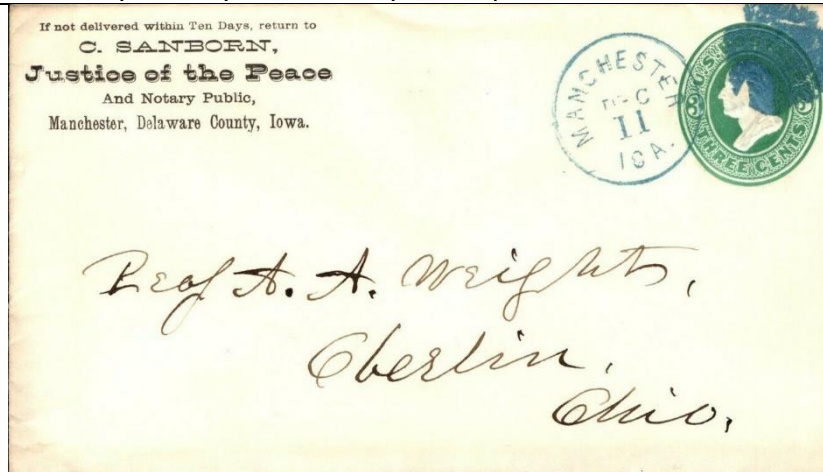 If not delivered within Ten Days, return to
C. SANBORN,
Justice of the Peace
And Notary Public,
Manchester, Delaware County, Iowa.
MANCHESTER
DEC
11
IOA.
U.S. POSTAGE
3 3
THREE CENTS
Prof A. A. Wright,
Oberlin,
Ohio,